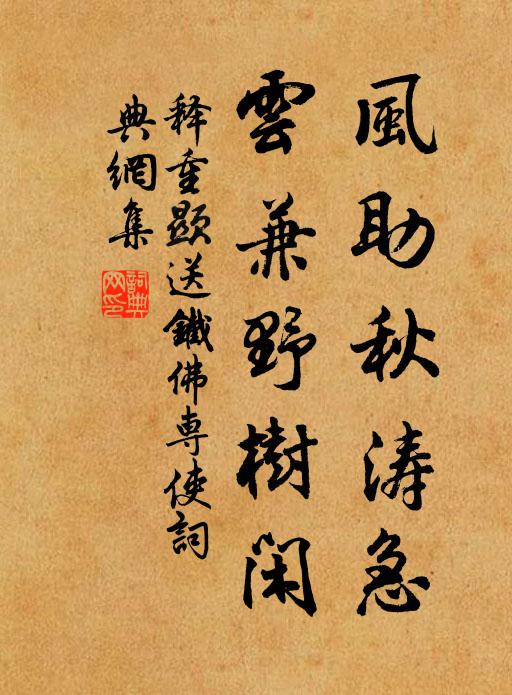 風助秋涛急
雲兼野樹閑
释重顯送鐵佛専使詞
典網集
詞典网印